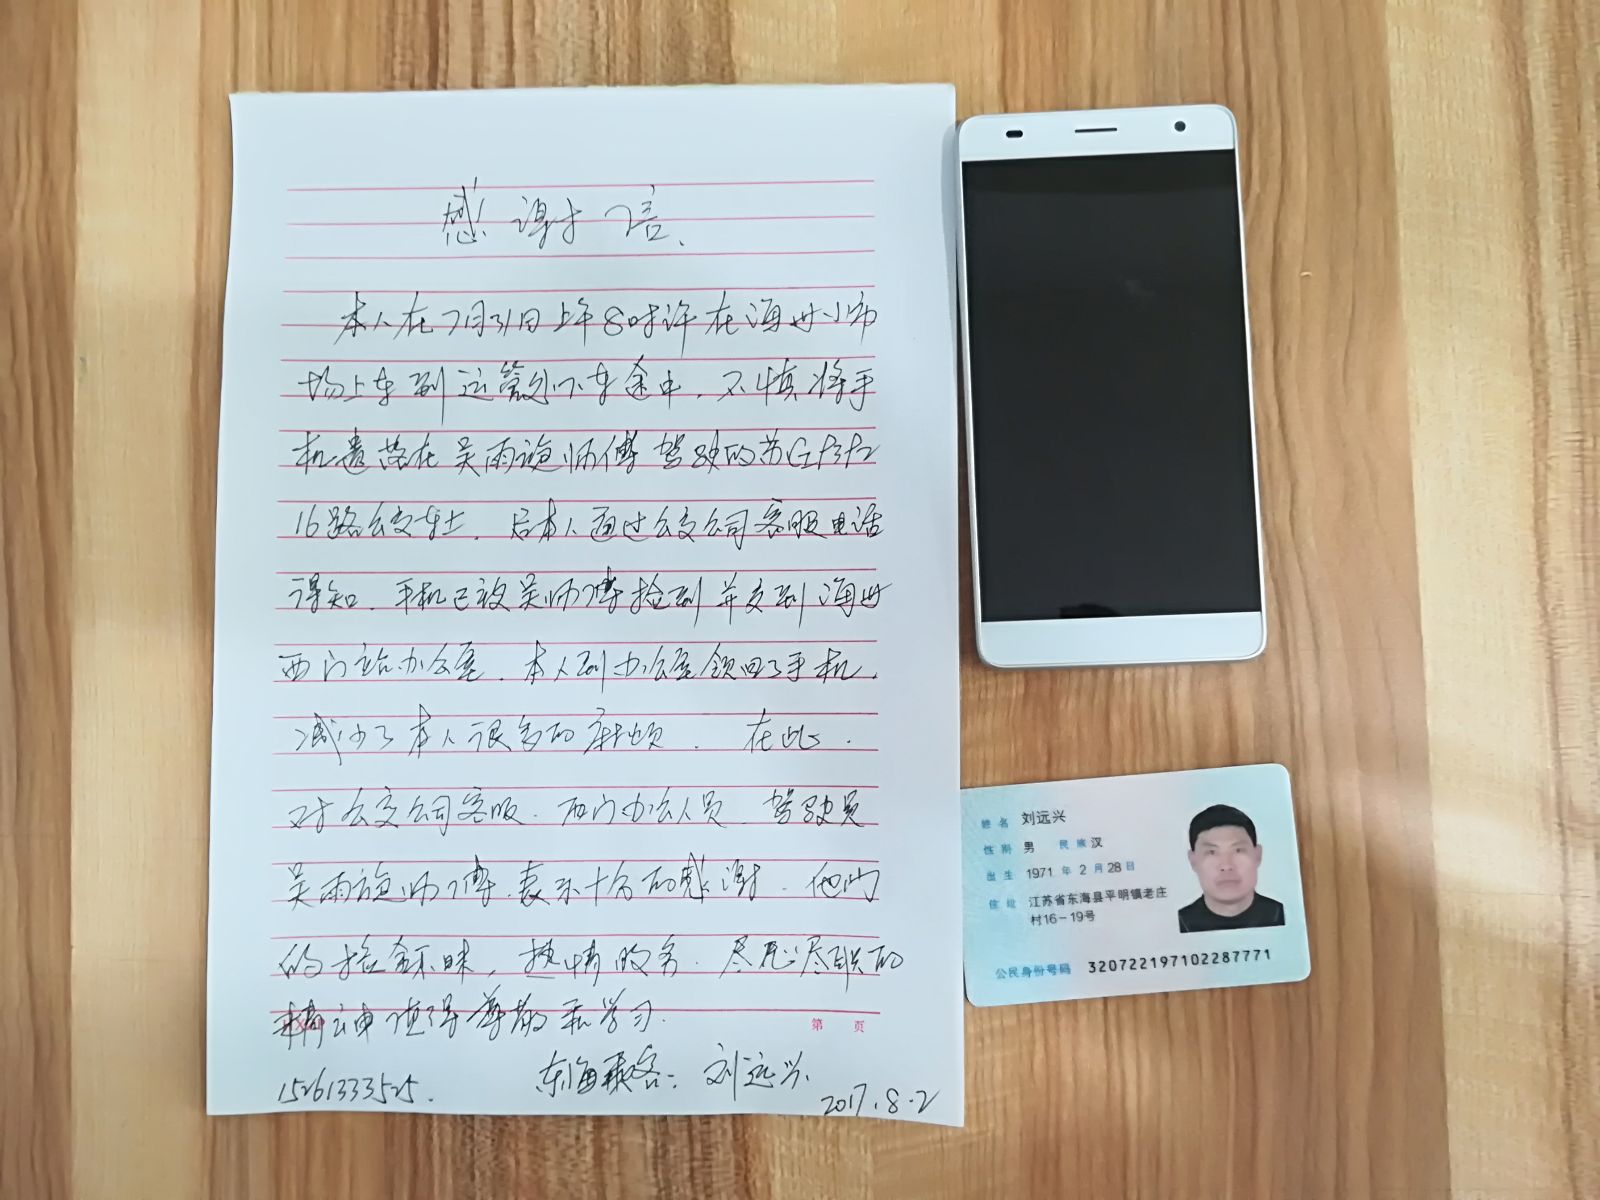 感谢信
本人在7月31日上午8时许在海州小市
场上车到运管处下车途中,不慎将手
机遗落在吴雨 师傅驾驶的苏G
16路公交车上。后本人通过公交公司客服电话
得知,手机已被吴师傅捡到并交到海州
西门站办公室,本人到办公室领回了手机,
减少了本人很多的麻烦。在此,
对公交公司客服、西门办公人员、驾驶员
吴雨 师傅,表示十分的感谢,他们
的拾金不昧,热情服务,尽心尽职的
精神值得尊敬和学习。
第 页
东海乘客:刘远兴
15261333525.
2017.8.2
姓名 刘远兴
性别 男 民族 汉
出生 1971 年 2 月 28 日
住址 江苏省东海县平明镇老庄
村16-19号
公民身份号码 320722197102287771